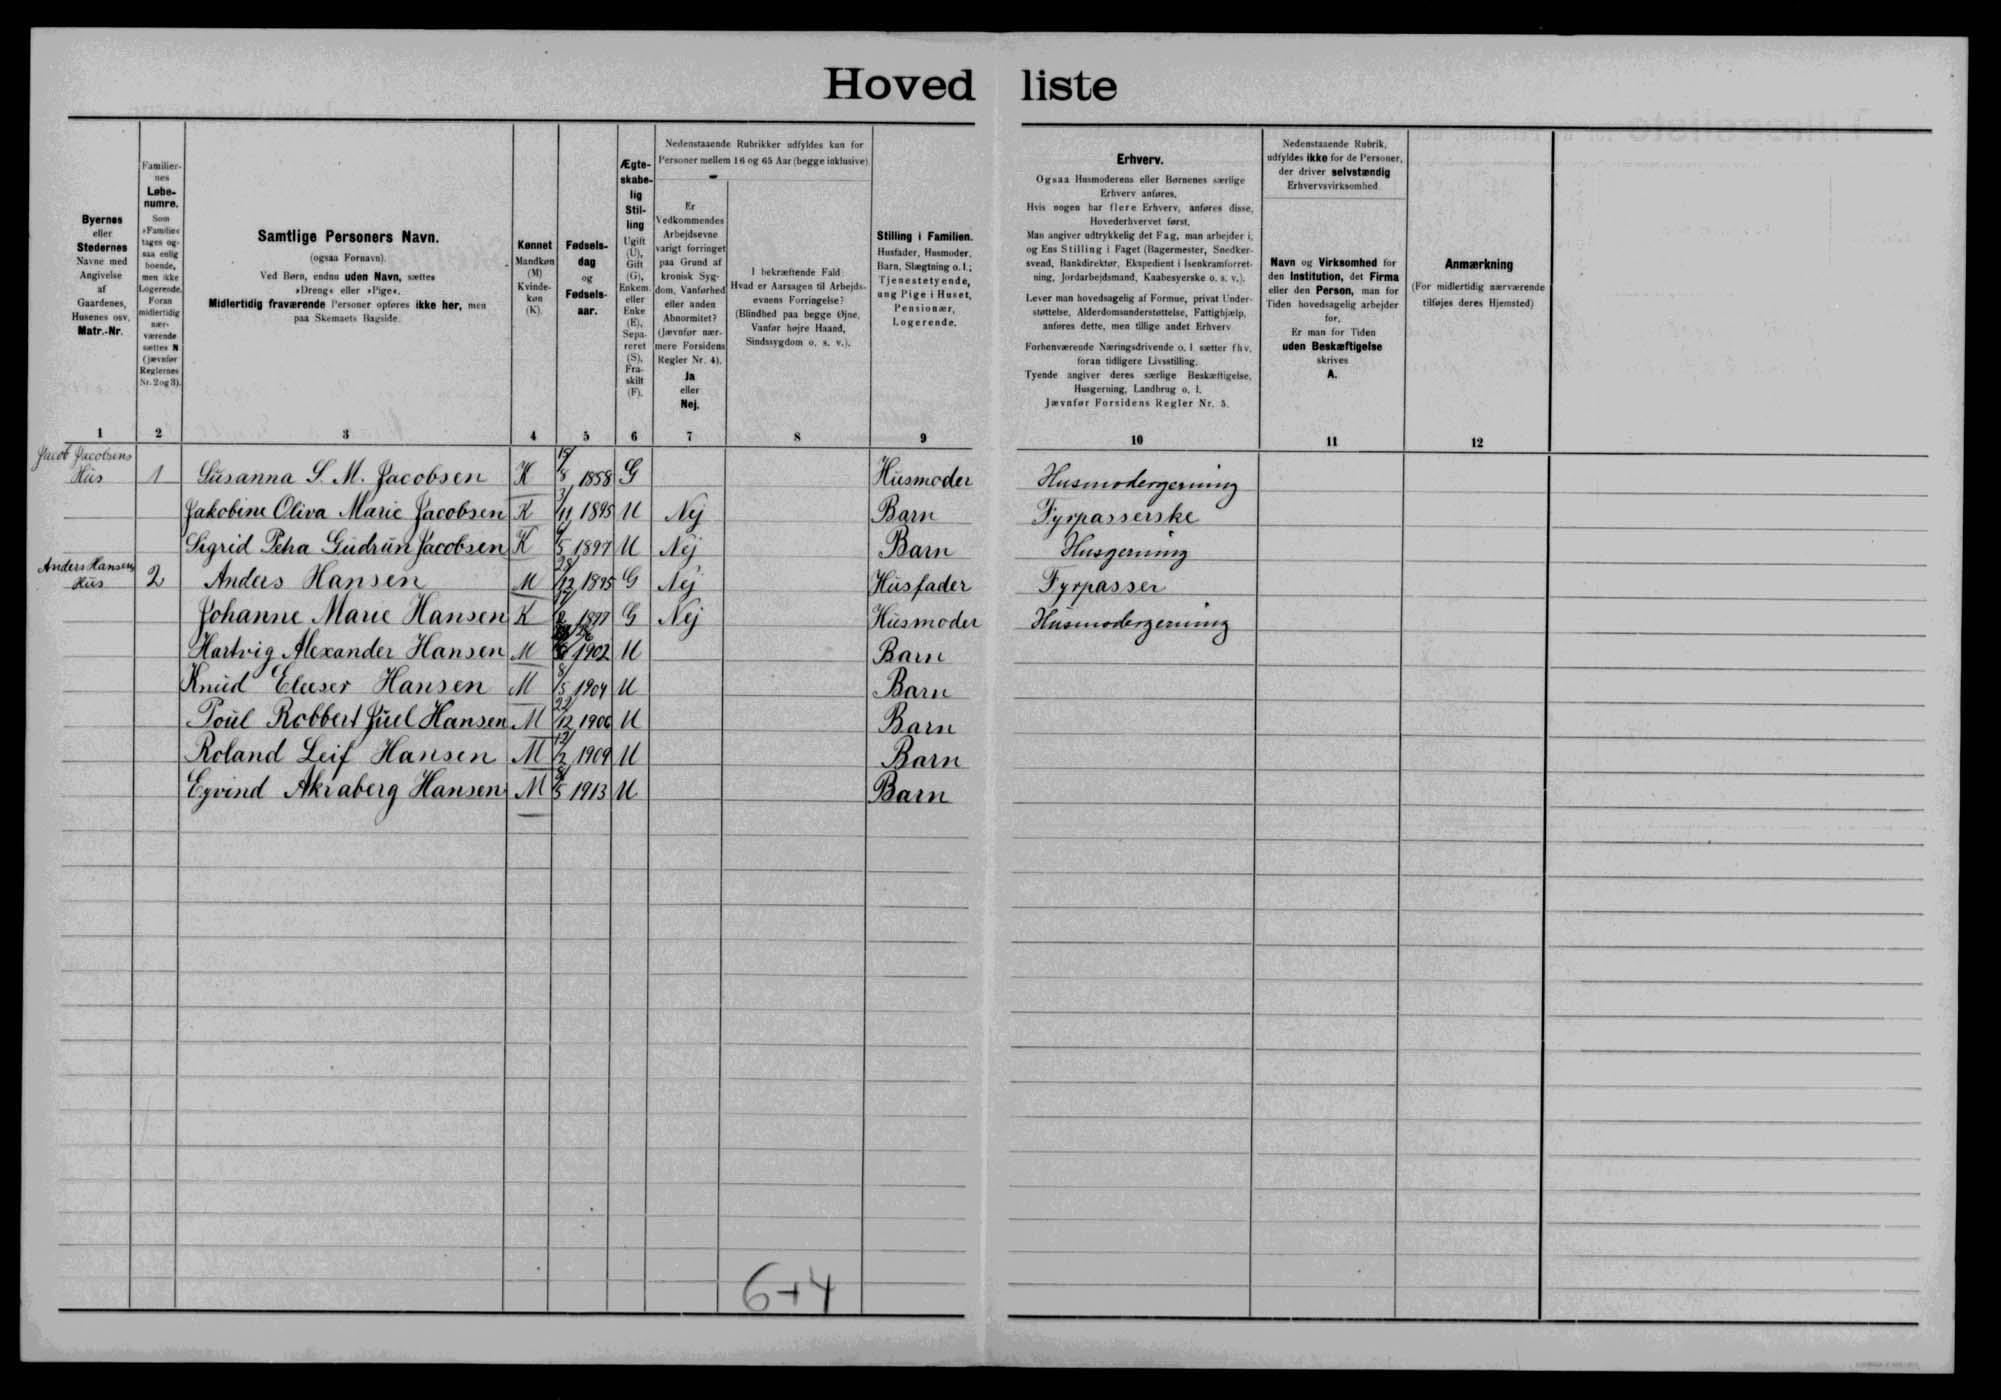 Hovedliste
Byernes eller Stedernes Navne med Angivelse af Gaardenes, Husenes osv. Matr.-Nr.
Familiernes Løbenumre. Som »Familie« tages ogsaa enlig boende, men ikke Logerende. Foran midlertidig nærværende sættes N (jævnfør Reglernes Nr. 2 og 3).
Samtlige Personers Navn.
(ogsaa Fornavn).
Ved Børn, endnu uden Navn, sættes
»Dreng« eller »Pige«.
Midlertidig fraværende Personer opføres ikke her, men
paa Skemaets Bagside.
Kønnet Mandkøn (M) Kvindekøn (K).
Fødselsdag og Fødselsaar.
Ægteskabelig Stilling Ugift (U), Gift (G), Enkem. eller Enke (E), Separeret (S), Fraskilt (F).
Nedenstaaende Rubrikker udfyldes kun for
Personer mellem 16 og 65 Aar (begge inklusive)
Er Vedkommendes Arbejdsevne varigt forringet paa Grund af kronisk Sygdom, Vanførhed eller anden Abnormitet? (Jævnfør nærmere Forsidens Regler Nr. 4).
Ja eller Nej.
I bekræftende Fald:
Hvad er Aarsagen til Arbejdsevnens Forringelse?
(Blindhed paa begge Øjne, Vanfør højre Haand, Sindssygdom o. s. v.).
Stilling i Familien.
Husfader, Husmoder, Barn, Slægtning o. l.; Tjenestetyende, ung Pige i Huset, Pensionær, Logerende.
Erhverv.
Ogsaa Husmoderens eller Børnenes særlige
Erhverv anføres.
Hvis nogen har flere Erhverv, anføres disse,
Hovederhvervet først.
Man angiver udtrykkelig det Fag, man arbejder i,
og Ens Stilling i Faget (Bagermester, Snedker-
svend, Bankdirektør, Ekspedient i Isenkramforret-
ning, Jordarbejdsmand, Kaabesyerske o. s. v.).
Lever man hovedsagelig af Formue, privat Under-
støttelse, Alderdomsunderstøttelse, Fattighjælp,
anføres dette, men tillige andet Erhverv
Forhenværende Næringsdrivende o. l. sætter fhv.
foran tidligere Livsstilling.
Tyende angiver deres særlige Beskæftigelse,
Husgerning, Landbrug o. l.
Jævnfør Forsidens Regler Nr. 5.
Nedenstaaende Rubrik,
udfyldes ikke for de Personer,
der driver selvstændig
Erhvervsvirksomhed
Navn og Virksomhed for
den Institution, det Firma
eller den Person, man for
Tiden hovedsagelig arbejder
for.
Er man for Tiden
uden Beskæftigelse
skrives
A.
Anmærkning
(For midlertidig nærværende
tilføjes deres Hjemsted)
1 2 3 4 5 6 7 8 9 10 11 12
Jacob Jacobsens Hus 1 Susanna S. M. Jacobsen K 15/8 1858 G Husmoder Husmodergerning
Jakobine Oliva Marie Jacobsen K 3/11 1895 U Nej Barn Fyrpasserske
Sigrid Petra Gudrun Jacobsen K /5 1897 U Nej Barn Husgerning
Anders Hansens Hus 2 Anders Hansen M 28/12 1875 G Nej Husfader Fyrpasser
Johanne Marie Hansen K 1877 G Nej Husmoder Husmodergerning
Hartvig Alexander Hansen M 1902 U Barn
Knud Elieser Hansen M 8/5 1904 U Barn
Poul Robbert Juel Hansen M 22/12 1906 U Barn
Roland Leif Hansen M 12/2 1909 U Barn
Eyvind Akraberg Hansen M /5 1913 U Barn
6+4